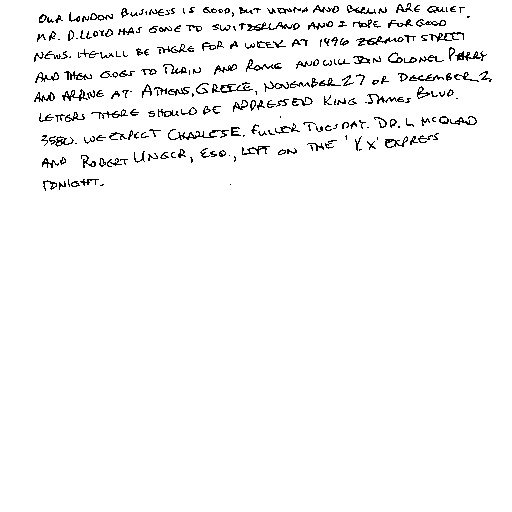 OUR LONDON BUSINESS IS GOOD, BUT VIENNA AND BERLIN ARE QUIET.
MR. D. LLOYD HAS GONE TO SWITZERLAND AND I HOPE FOR GOOD
NEWS. HE WILL BE THERE FOR A WEEK AT 1496 ZERMOTT STREET
AND THEN GOES TO TURIN AND ROME AND WILL JOIN COLONEL PARRY
AND ARRIVE AT ATHENS, GREECE, NOVEMBER 27 OR DECEMBER 2.
LETTERS THERE SHOULD BE ADDRESSED KING JAMES BLVD.
3580. WE EXPECT CHARLES E. FULLER TUESDAY. DR. L MCQUAD
AND ROBERT UNGER, ESQ., LEFT ON THE 'Y.X' EXPRESS
TONIGHT.